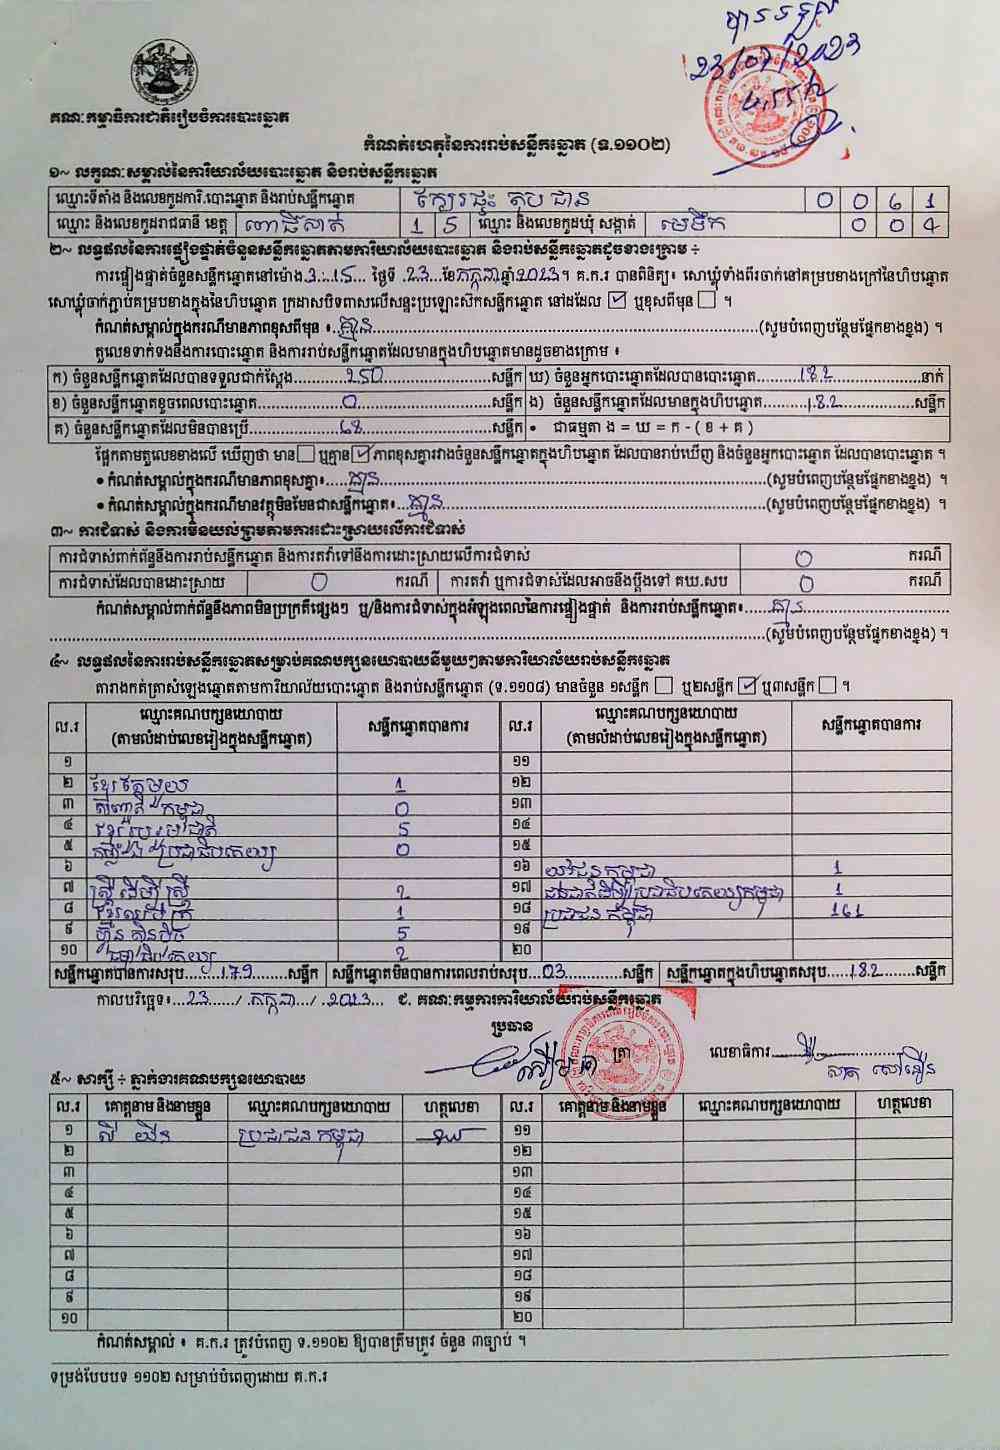 បានទទួល
23/07/2023
គណៈកម្មាធិការជាតិរៀបចំការបោះឆ្នោត
កំណត់ហេតុនៃការរាប់សន្លឹកឆ្នោត (ទ.១១០២)
១~ លក្ខណៈសម្គាល់នៃការិយាល័យបោះឆ្នោត និងរាប់សន្លឹកឆ្នោត
ឈ្មោះទីតាំង និងលេខកូដការិ.បោះឆ្នោត និងរាប់សន្លឹកឆ្នោត ក្បែរផ្ទះ តុប ជាន 0 0 6 1
ឈ្មោះ និងលេខកូដរាជធានី ខេត្ត ពោធិ៍សាត់ 1 5 ឈ្មោះ និងលេខកូដឃុំ សង្កាត់ មេទឹក 0 0 4
២~ លទ្ធផលនៃការផ្ទៀងផ្ទាត់ចំនួនសន្លឹកឆ្នោតតាមការិយាល័យបោះឆ្នោត និងរាប់សន្លឹកឆ្នោតដូចខាងក្រោម ÷
ការផ្ទៀងផ្ទាត់ចំនួនសន្លឹកឆ្នោតនៅម៉ោង 3:15 ថ្ងៃទី 23 ខែ កក្កដា ឆ្នាំ 2023។ គ.ក.រ បានពិនិត្យ៖ សោឃ្លុំទាំងពីរចាក់នៅគម្របខាងក្រៅនៃហិបឆ្នោត
សោឃ្លុំចាក់ភ្ជាប់គម្របខាងក្នុងនៃហិបឆ្នោត ក្រដាសបិទពាសលើសន្ទះប្រឡោះសិកសន្លឹកឆ្នោត នៅដដែល ☑ ឬខុសពីមុន ☐ ។
កំណត់សម្គាល់ក្នុងករណីមានភាពខុសពីមុន ៖ គ្មាន (សូមបំពេញបន្ថែមផ្នែកខាងខ្នង) ។
តួលេខទាក់ទងនឹងការបោះឆ្នោត និងការរាប់សន្លឹកឆ្នោតដែលមានក្នុងហិបឆ្នោតមានដូចខាងក្រោម ៖
ក) ចំនួនសន្លឹកឆ្នោតដែលបានទទួលជាក់ស្តែង 250 សន្លឹក ឃ) ចំនួនអ្នកបោះឆ្នោតដែលបានបោះឆ្នោត 182 នាក់
ខ) ចំនួនសន្លឹកឆ្នោតខូចពេលបោះឆ្នោត 0 សន្លឹក ង) ចំនួនសន្លឹកឆ្នោតដែលមានក្នុងហិបឆ្នោត 182 សន្លឹក
គ) ចំនួនសន្លឹកឆ្នោតដែលមិនបានប្រើ 68 សន្លឹក • ជាធម្មតា ង = ឃ = ក - ( ខ + គ )
ផ្អែកតាមតួលេខខាងលើ ឃើញថា មាន ☐ ឬគ្មាន ☑ ភាពខុសគ្នារវាងចំនួនសន្លឹកឆ្នោតក្នុងហិបឆ្នោត ដែលបានរាប់ឃើញ និងចំនួនអ្នកបោះឆ្នោត ដែលបានបោះឆ្នោត ។
• កំណត់សម្គាល់ក្នុងករណីមានភាពខុសគ្នា៖ គ្មាន (សូមបំពេញបន្ថែមផ្នែកខាងខ្នង) ។
• កំណត់សម្គាល់ក្នុងករណីមានវត្ថុមិនមែនជាសន្លឹកឆ្នោត៖ គ្មាន (សូមបំពេញបន្ថែមផ្នែកខាងខ្នង) ។
៣~ ការជំទាស់ និងការមិនយល់ព្រមតាមការដោះស្រាយលើការជំទាស់
ការជំទាស់ពាក់ព័ន្ធនឹងការរាប់សន្លឹកឆ្នោត និងការតវ៉ាទៅនឹងការដោះស្រាយលើការជំទាស់ 0 ករណី
ការជំទាស់ដែលបានដោះស្រាយ 0 ករណី ការតវ៉ា ឬការជំទាស់ដែលអាចនឹងប្តឹងទៅ គឃ.សប 0 ករណី
កំណត់សម្គាល់ពាក់ព័ន្ធនឹងភាពមិនប្រក្រតីផ្សេងៗ ឬ/និងការជំទាស់ក្នុងអំឡុងពេលនៃការផ្ទៀងផ្ទាត់ និងការរាប់សន្លឹកឆ្នោត៖ គ្មាន
(សូមបំពេញបន្ថែមផ្នែកខាងខ្នង) ។
៤~ លទ្ធផលនៃការរាប់សន្លឹកឆ្នោតសម្រាប់គណបក្សនយោបាយនីមួយៗតាមការិយាល័យរាប់សន្លឹកឆ្នោត
តារាងកត់ត្រាសំឡេងឆ្នោតតាមការិយាល័យបោះឆ្នោត និងរាប់សន្លឹកឆ្នោត (ទ.១១០៨) មានចំនួន ១សន្លឹក ☐ ឬ២សន្លឹក ☑ ឬ៣សន្លឹក ☐ ។
ល.រ ឈ្មោះគណបក្សនយោបាយ (តាមលំដាប់លេខរៀងក្នុងសន្លឹកឆ្នោត) សន្លឹកឆ្នោតបានការ ល.រ ឈ្មោះគណបក្សនយោបាយ (តាមលំដាប់លេខរៀងក្នុងសន្លឹកឆ្នោត) សន្លឹកឆ្នោតបានការ
១ ១១
២ ខ្មែរតែមួយ 1 ១២
៣ កម្ពុជា 0 ១៣
៤ 5 ១៤
៥ ប្រជាធិបតេយ្យ 0 ១៥
៦ ១៦ យុវជនកម្ពុជា 1
៧ ស្ត្រីដើម្បីស្ត្រី 2 ១៧ ជនជាតិដើមប្រជាធិបតេយ្យកម្ពុជា 1
៨ 1 ១៨ ប្រជាជនកម្ពុជា 161
៩ ហ៊្វុនស៊ិនប៉ិច 5 ១៩
១០ ធម្មាធិបតេយ្យ 2 ២០
សន្លឹកឆ្នោតបានការសរុប 179 សន្លឹក សន្លឹកឆ្នោតមិនបានការពេលរាប់សរុប 03 សន្លឹក សន្លឹកឆ្នោតក្នុងហិបឆ្នោតសរុប 182 សន្លឹក
កាលបរិច្ឆេទ៖ 23 / កក្កដា / 2023 ជ. គណៈកម្មការការិយាល័យរាប់សន្លឹកឆ្នោត
ប្រធាន
ត្រា
លេខាធិការ
៥~ សាក្សី ÷ ភ្នាក់ងារគណបក្សនយោបាយ
ល.រ គោត្តនាម និងនាមខ្លួន ឈ្មោះគណបក្សនយោបាយ ហត្ថលេខា ល.រ គោត្តនាម និងនាមខ្លួន ឈ្មោះគណបក្សនយោបាយ ហត្ថលេខា
១ ប្រជាជនកម្ពុជា ១១
២ ១២
៣ ១៣
៤ ១៤
៥ ១៥
៦ ១៦
៧ ១៧
៨ ១៨
៩ ១៩
១០ ២០
កំណត់សម្គាល់ ៖ គ.ក.រ ត្រូវបំពេញ ទ.១១០២ ឱ្យបានត្រឹមត្រូវ ចំនួន ៣ច្បាប់ ។
ទម្រង់បែបបទ ១១០២ សម្រាប់បំពេញដោយ គ.ក.រ